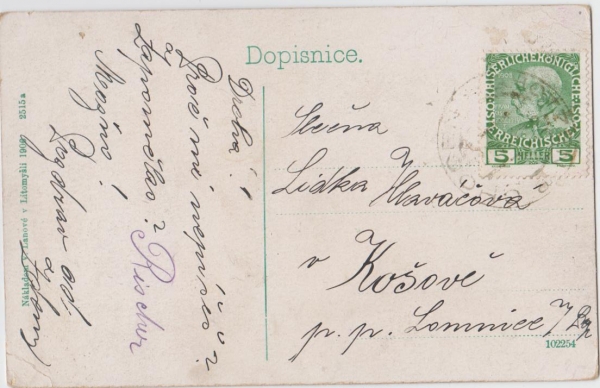 Dopisnice.
Drahá!
Proč mi nepíšeš?
Zapomněla?
a
Mařno!
Pozdrav od
Slečna
Lidka Hlaváčova
v
Košově
p. p. Lomnice n/Pop
KAISERLICHE KÖNIGLICHE
ÖSTERREICHISCHE
5 HELLER 5
Nákladem Lanové v Litomyšli 1909 2515a
102254